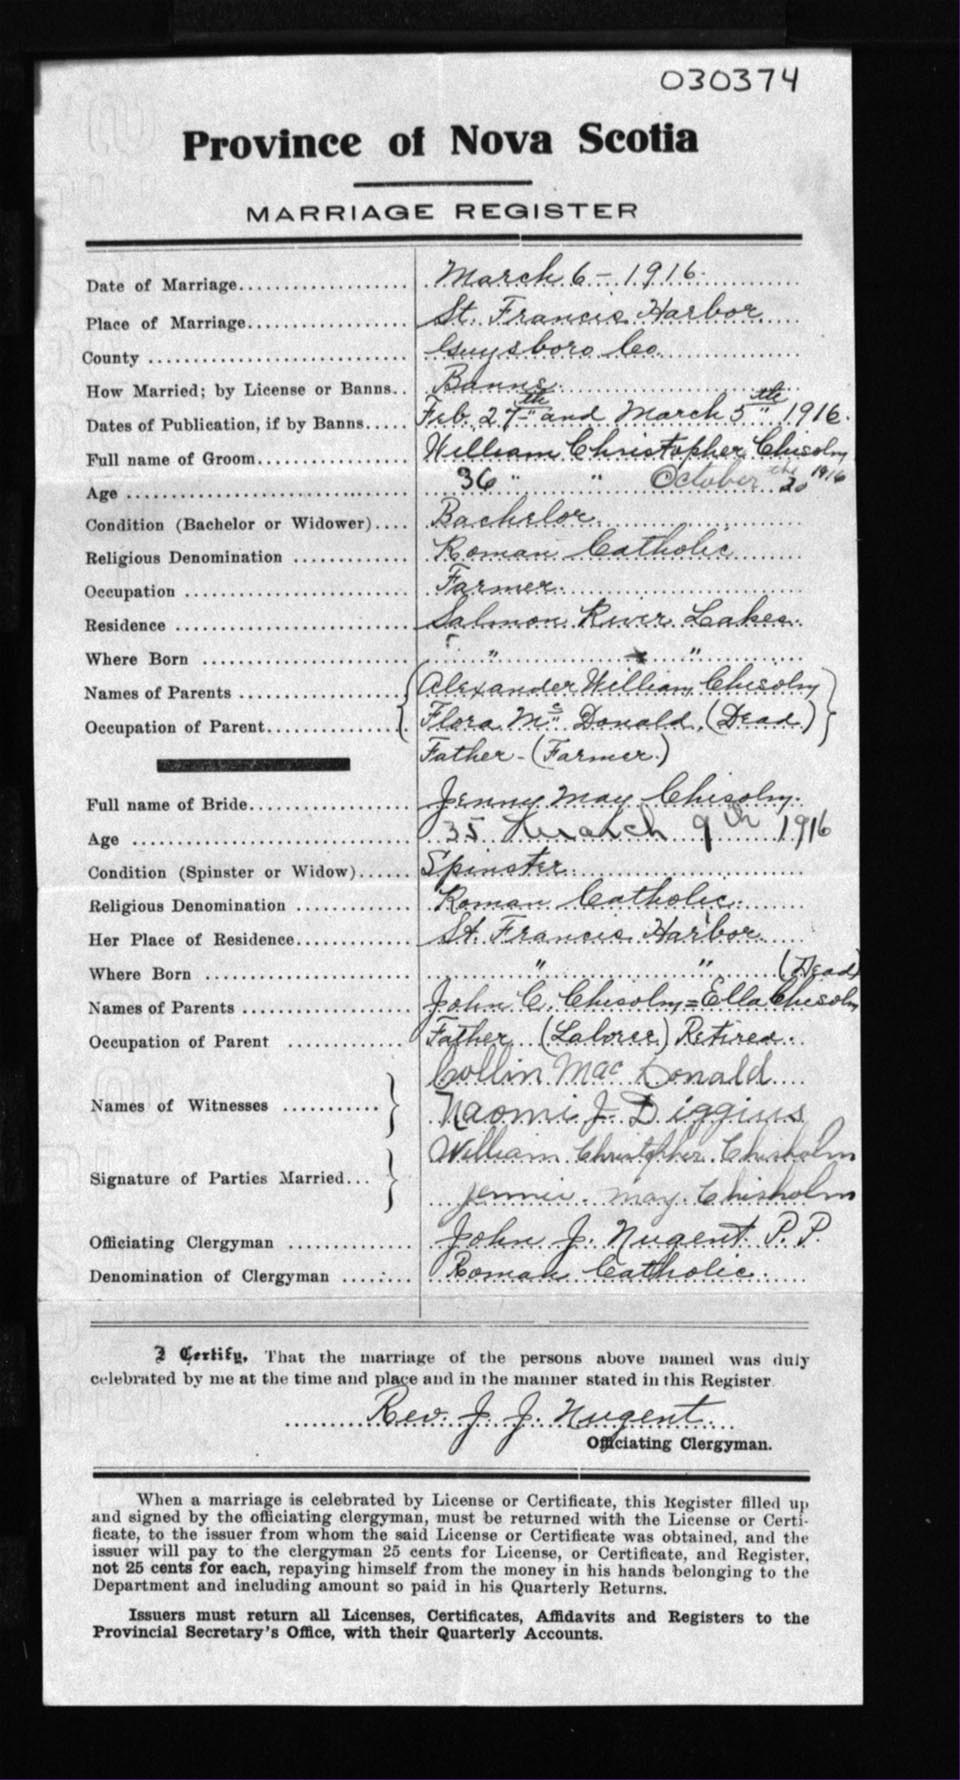 030374
Province of Nova Scotia
MARRIAGE REGISTER
Date of Marriage................... March 6 – 1916.
Place of Marriage................... St. Francis Harbor
County ................... Guysboro Co.
How Married; by License or Banns.. Banns.
Dates of Publication, if by Banns..... Feb. 27th and March 5th 1916.
Full name of Groom................... William Christopher Chisolm
Age ................... 36 " " October the 20 1916
Condition (Bachelor or Widower).... Bachelor
Religious Denomination ............ Roman Catholic
Occupation ................... Farmer.
Residence ................... Salmon River Lakes.
Where Born ................... " "
Names of Parents ................... Alexander William Chisolm
Occupation of Parent................ Flora Mc Donald (Dead)
Father - (Farmer.)
Full name of Bride................... Jenny May Chisolm.
Age ................... 35 March 9th 1916
Condition (Spinster or Widow)...... Spinster.
Religious Denomination ............ Roman Catholic.
Her Place of Residence............. St. Francis Harbor
Where Born ................... " " (Dead)
Names of Parents ................... John C. Chisolm = Ella Chisolm
Occupation of Parent ............ Father (Laborer) Retired.
Collin Mac Donald
Names of Witnesses ........... Naomi J. Diggins
William Christopher Chisholm
Signature of Parties Married... Jennie May Chisholm
Officiating Clergyman ............ John J. Nugent. P.P.
Denomination of Clergyman ........ Roman Catholic.
I Certify, That the marriage of the persons above named was duly
celebrated by me at the time and place and in the manner stated in this Register
Rev. J. J. Nugent.
Officiating Clergyman.
When a marriage is celebrated by License or Certificate, this Register filled up
and signed by the officiating clergyman, must be returned with the License or Certi-
ficate, to the issuer from whom the said License or Certificate was obtained, and the
issuer will pay to the clergyman 25 cents for License, or Certificate, and Register,
not 25 cents for each, repaying himself from the money in his hands belonging to the
Department and including amount so paid in his Quarterly Returns.
Issuers must return all Licenses, Certificates, Affidavits and Registers to the
Provincial Secretary's Office, with their Quarterly Accounts.